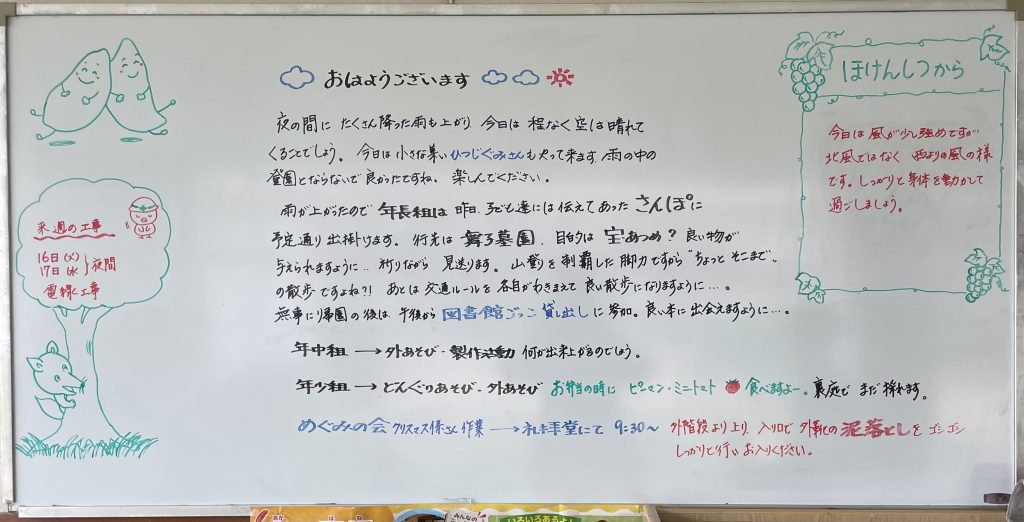 おはようございます
夜の間に たくさん降った雨も上がり 今日は 程なく空は晴れて
くることでしょう。今日は小さな集い ひつじぐみさんも やって来ます/雨の中の
登園とならないで良かったですね、楽しんでください。
雨が上がったので 年長組は 昨日、子ども達には伝えてあった さんぽに
予定通り出掛けます。行先は 舞子墓園、目的は 宝あつめ? 良い物が
与えられますように… 祈りながら 見送ります。山登りを制覇した脚力ですから“ちょっと そこまで〟
の散歩ですよね?! あとは交通ルールを各自がわきまえて 良い散歩になりますように…。
無事にり帰園の後は 午後から 図書館ごっこ 貸し出し に参加。良い本に出会えますように…。
年中組 → 外あそび・製作活動 何が出来上がるのでしょう。
年少組 → どんぐりあそび・外あそび お弁当の時に ピーマン・ミニトマト 食べますよー。裏庭で まだ採れます。
めぐみの会 クリスマス 作業 → 礼拝堂にて 9:30〜 外階段より上り 入り口で 外靴の 泥落としを ゴシゴシ
しっかりと行い お入りください。
来週の工事
16日(火)
17日(水) }夜間
電線工事
ほけんしつから
今日は風が少し強めですが
北風ではなく 西よりの風の様
です。しっかりと身体を動かして
過ごしましょう。
みんなの
いろいろあるよ!